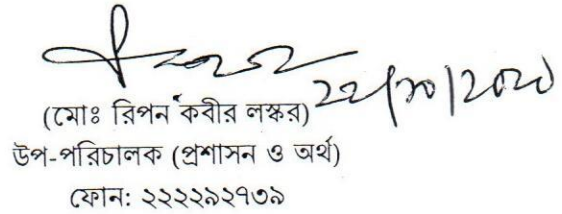 (মোঃ রিপন কবীর লস্কর)
উপ-পরিচালক (প্রশাসন ও অর্থ)
ফোন: ২২২২৯২৭৩৯